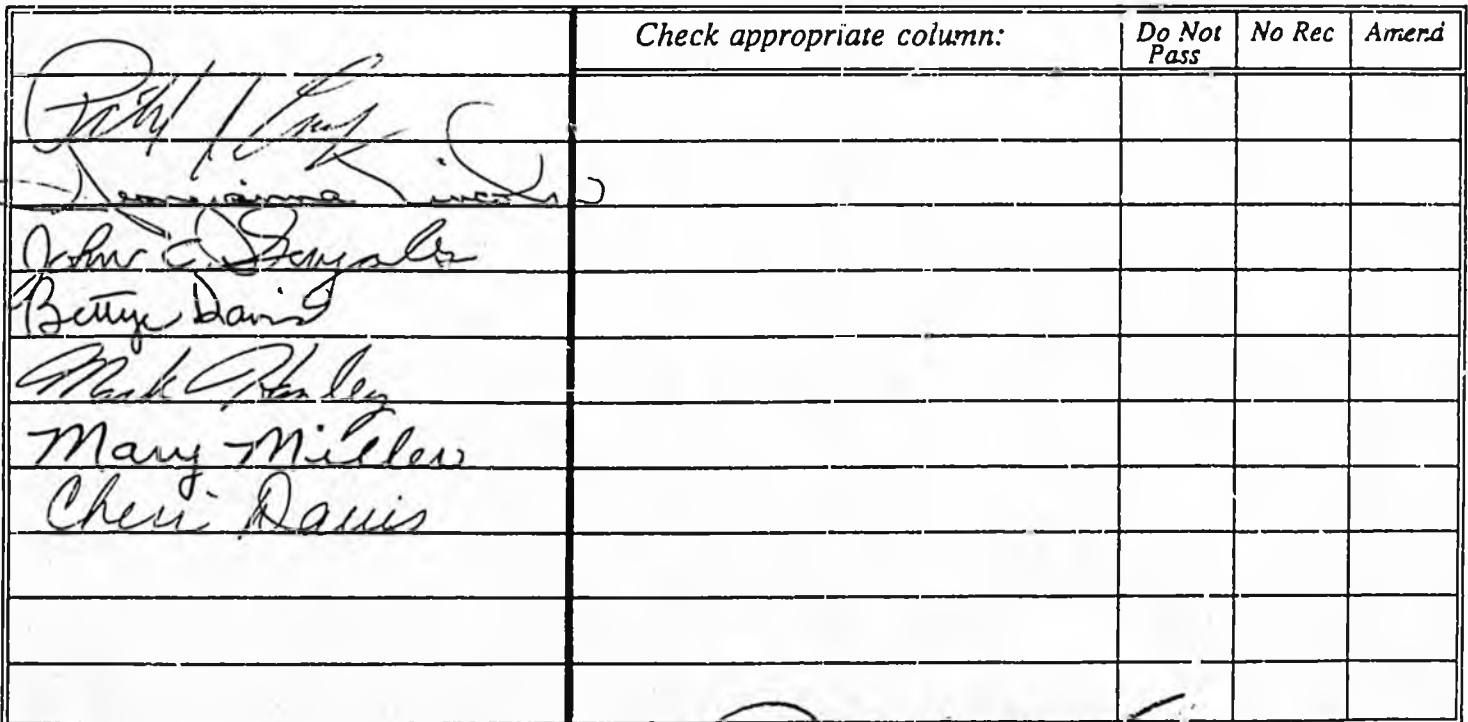 Check appropriate column: Do Not Pass No Rec Amend
John C. Gonzales
Bettye Davis
Mark Hanley
Mary Miller
Cheri Davis